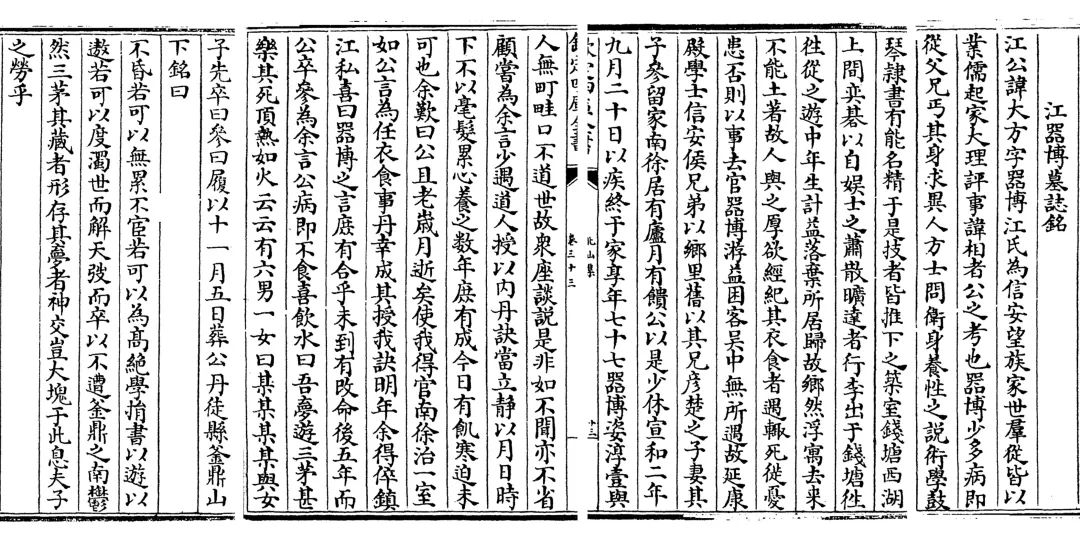 江器博墓誌銘
江公諱大方字器博江氏為信安望族家世羣從皆以
業儒起家大理評事諱相者公之考也器博少多病即
從父兄丐其身求異人方士問衛身養性之説術學鼓
琴隷書有能名精于是技者皆推下之築室錢塘西湖
上問奕碁以自娱士之蕭散曠達者行李出于錢塘徃
徃從之遊中年生計益落棄所居歸故鄉然浮寓去来
不能土著故人與之厚欲經紀其衣食者遇輒死從憂
患否則以事去官器博游益困客吴中無所遇故延康
殿學士信安侯兄弟以鄉里舊以其兄彦楚之子妻其
子參留家南徐居有廬月有饋公以是少休宣和二年
九月二十日以疾終于家享年七十七器博姿淳壹與
北山集
卷三十三
十三
欽定四庫全書
人無町畦口不道世故衆座談説是非如不聞亦不省
顧當為余言少遇道人授以内丹訣當立静以月日時
下不以毫髮累心養之数年庶有成今日有飢寒迫未
可也余歎曰公且老嵗月逝矣使我得官南徐治一室
如公言為任衣食事丹幸成其授我訣明年余得倅鎮
江私喜曰器博之言庶有合乎未到有改命後五年而
公卒參為余言公病即不食喜飲水曰吾夢遊三茅甚
樂其死頂熱如火云云有六男一女曰某某某某與女
子先卒曰參曰履以十一月五日葬公丹徒縣釜鼎山
下銘曰
不昏若可以無累不宦若可以為髙絶學捐書以遊以
遨若可以度濁世而解天弢而卒以不遭釜鼎之南鬱
然三茅其藏者形存其夢者神交豈大塊于此息夫子
之勞乎